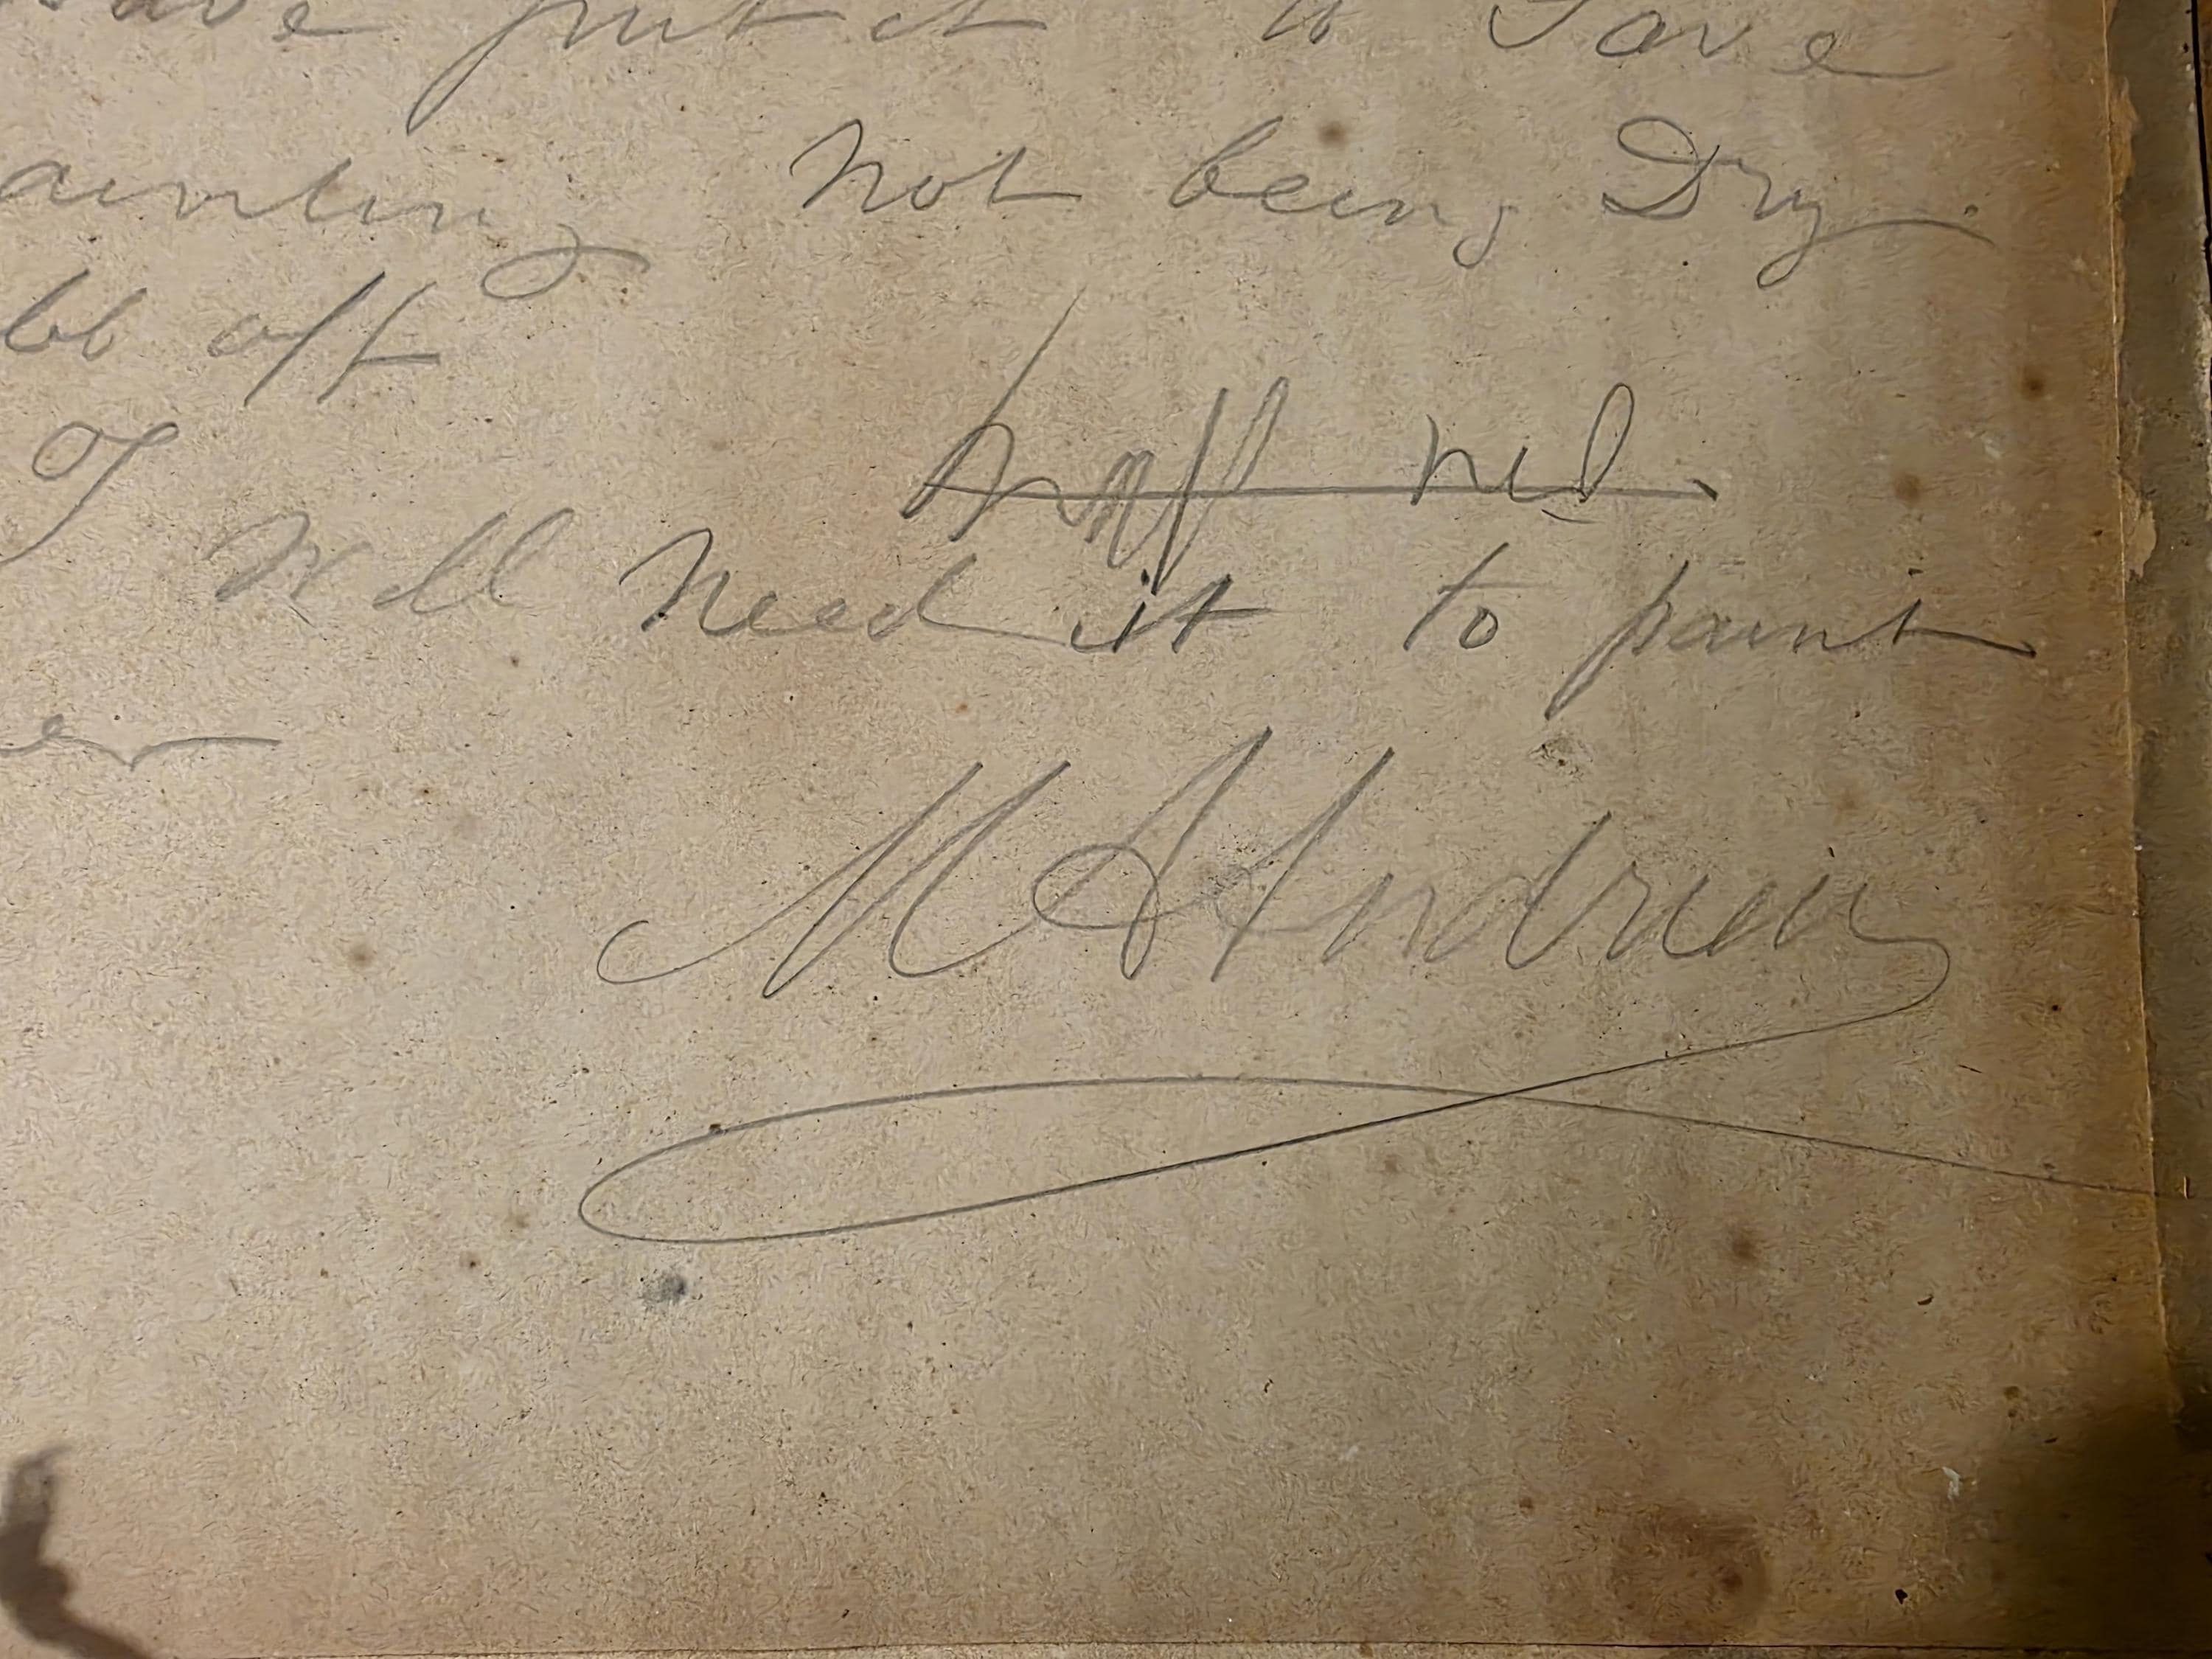 have put it to Save
ainting Not being Dry
bb off
of
Will Need it to paint
er
M A Andrieu